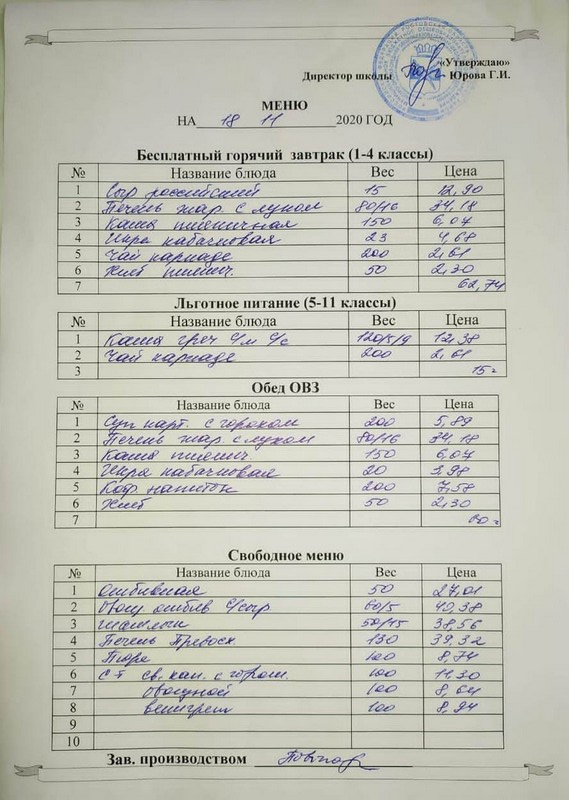 «Утверждаю»
Директор школы Юрова Г.И.
МЕНЮ
НА 18 11 2020 ГОД
Бесплатный горячий завтрак (1-4 классы)
№ Название блюда Вес Цена
1 Сыр российский 15 12,90
2 Печень жар. с луком 80/16 34,18
3 Каша пшеничная 150 6,07
4 Икра кабачковая 23 4,68
5 Чай каркаде 200 2,61
6 Хлеб пшенич. 50 2,30
7 62,74
Льготное питание (5-11 классы)
№ Название блюда Вес Цена
1 Каша греч с/м с/с 120/5/9 12,38
2 Чай каркаде 200 2,61
3 15=
Обед ОВЗ
№ Название блюда Вес Цена
1 Суп карт. с горохом 200 5,89
2 Печень жар. с луком 80/16 34,18
3 Каша пшенич 150 6,07
4 Икра кабачковая 20 3,98
5 Коф. напиток 200 7,58
6 Хлеб 50 2,30
7 60=
Свободное меню
№ Название блюда Вес Цена
1 Отбивная 50 27,01
2 отбив с/сыр 60/5 40,38
3 50/45 38,56
4 Печень 130 39,32
5 Пюре 100 8,74
6 С-т св. кап. с горош. 100 11,30
7 овощной 100 8,64
8 винегрет 100 8,94
9
10
Зав. производством